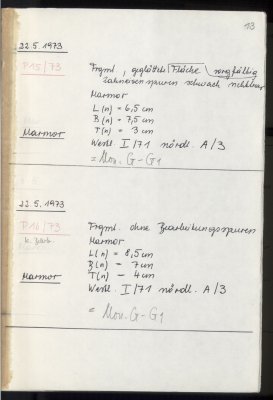 13
22.5.1973
P15/73
Frgmt, geglättete Fläche, sorgfältig
Zahneisenspuren schwach sichtbar
Marmor
L(n) = 6,5 cm
B(n) = 7,5 cm
T(n) = 3 cm
Marmor
Westl. I/71 nördl. A/3
= Mon. G-G1
22.5.1973
P16/73
Frgmt. ohne Bearbeitungsspuren
Marmor
L(n) = 8,5 cm
B(n) = 7 cm
T(n) = 4 cm
Marmor
Westl. I/71 nördl. A/3
= Mon. G-G1